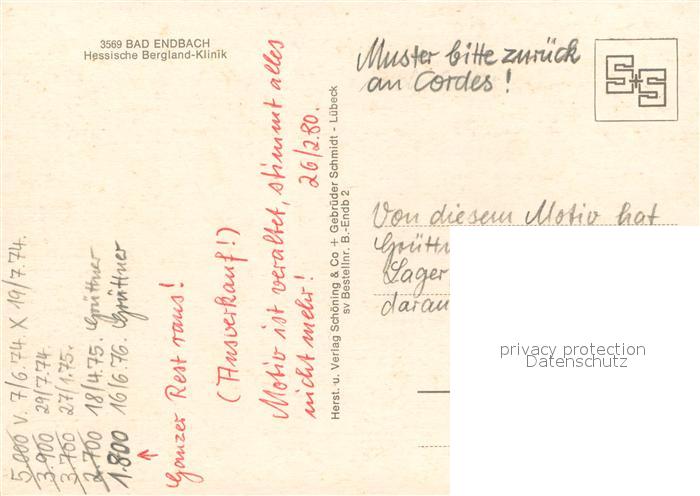 3569 BAD ENDBACH
Hessische Bergland-Klinik
Muster bitte zurück
an Cordes!
S+S
Von diesem Motiv hat
Lager
daran
5.000 v. 7/6.74. X 19/7.74.
3.900 29/7.74.
3.700 27/1.75.
2.700 18/4.75. Grüttner
1.800 16/6.76. Grüttner
Ganzer Rest raus!
(Ausverkauf!)
Motiv ist veraltet, stimmt alles
nicht mehr! 26/2.80.
Herst. u. Verlag Schöning & Co + Gebrüder Schmidt - Lübeck
sv Bestellnr. B.-Endb 2
privacy protection
Datenschutz